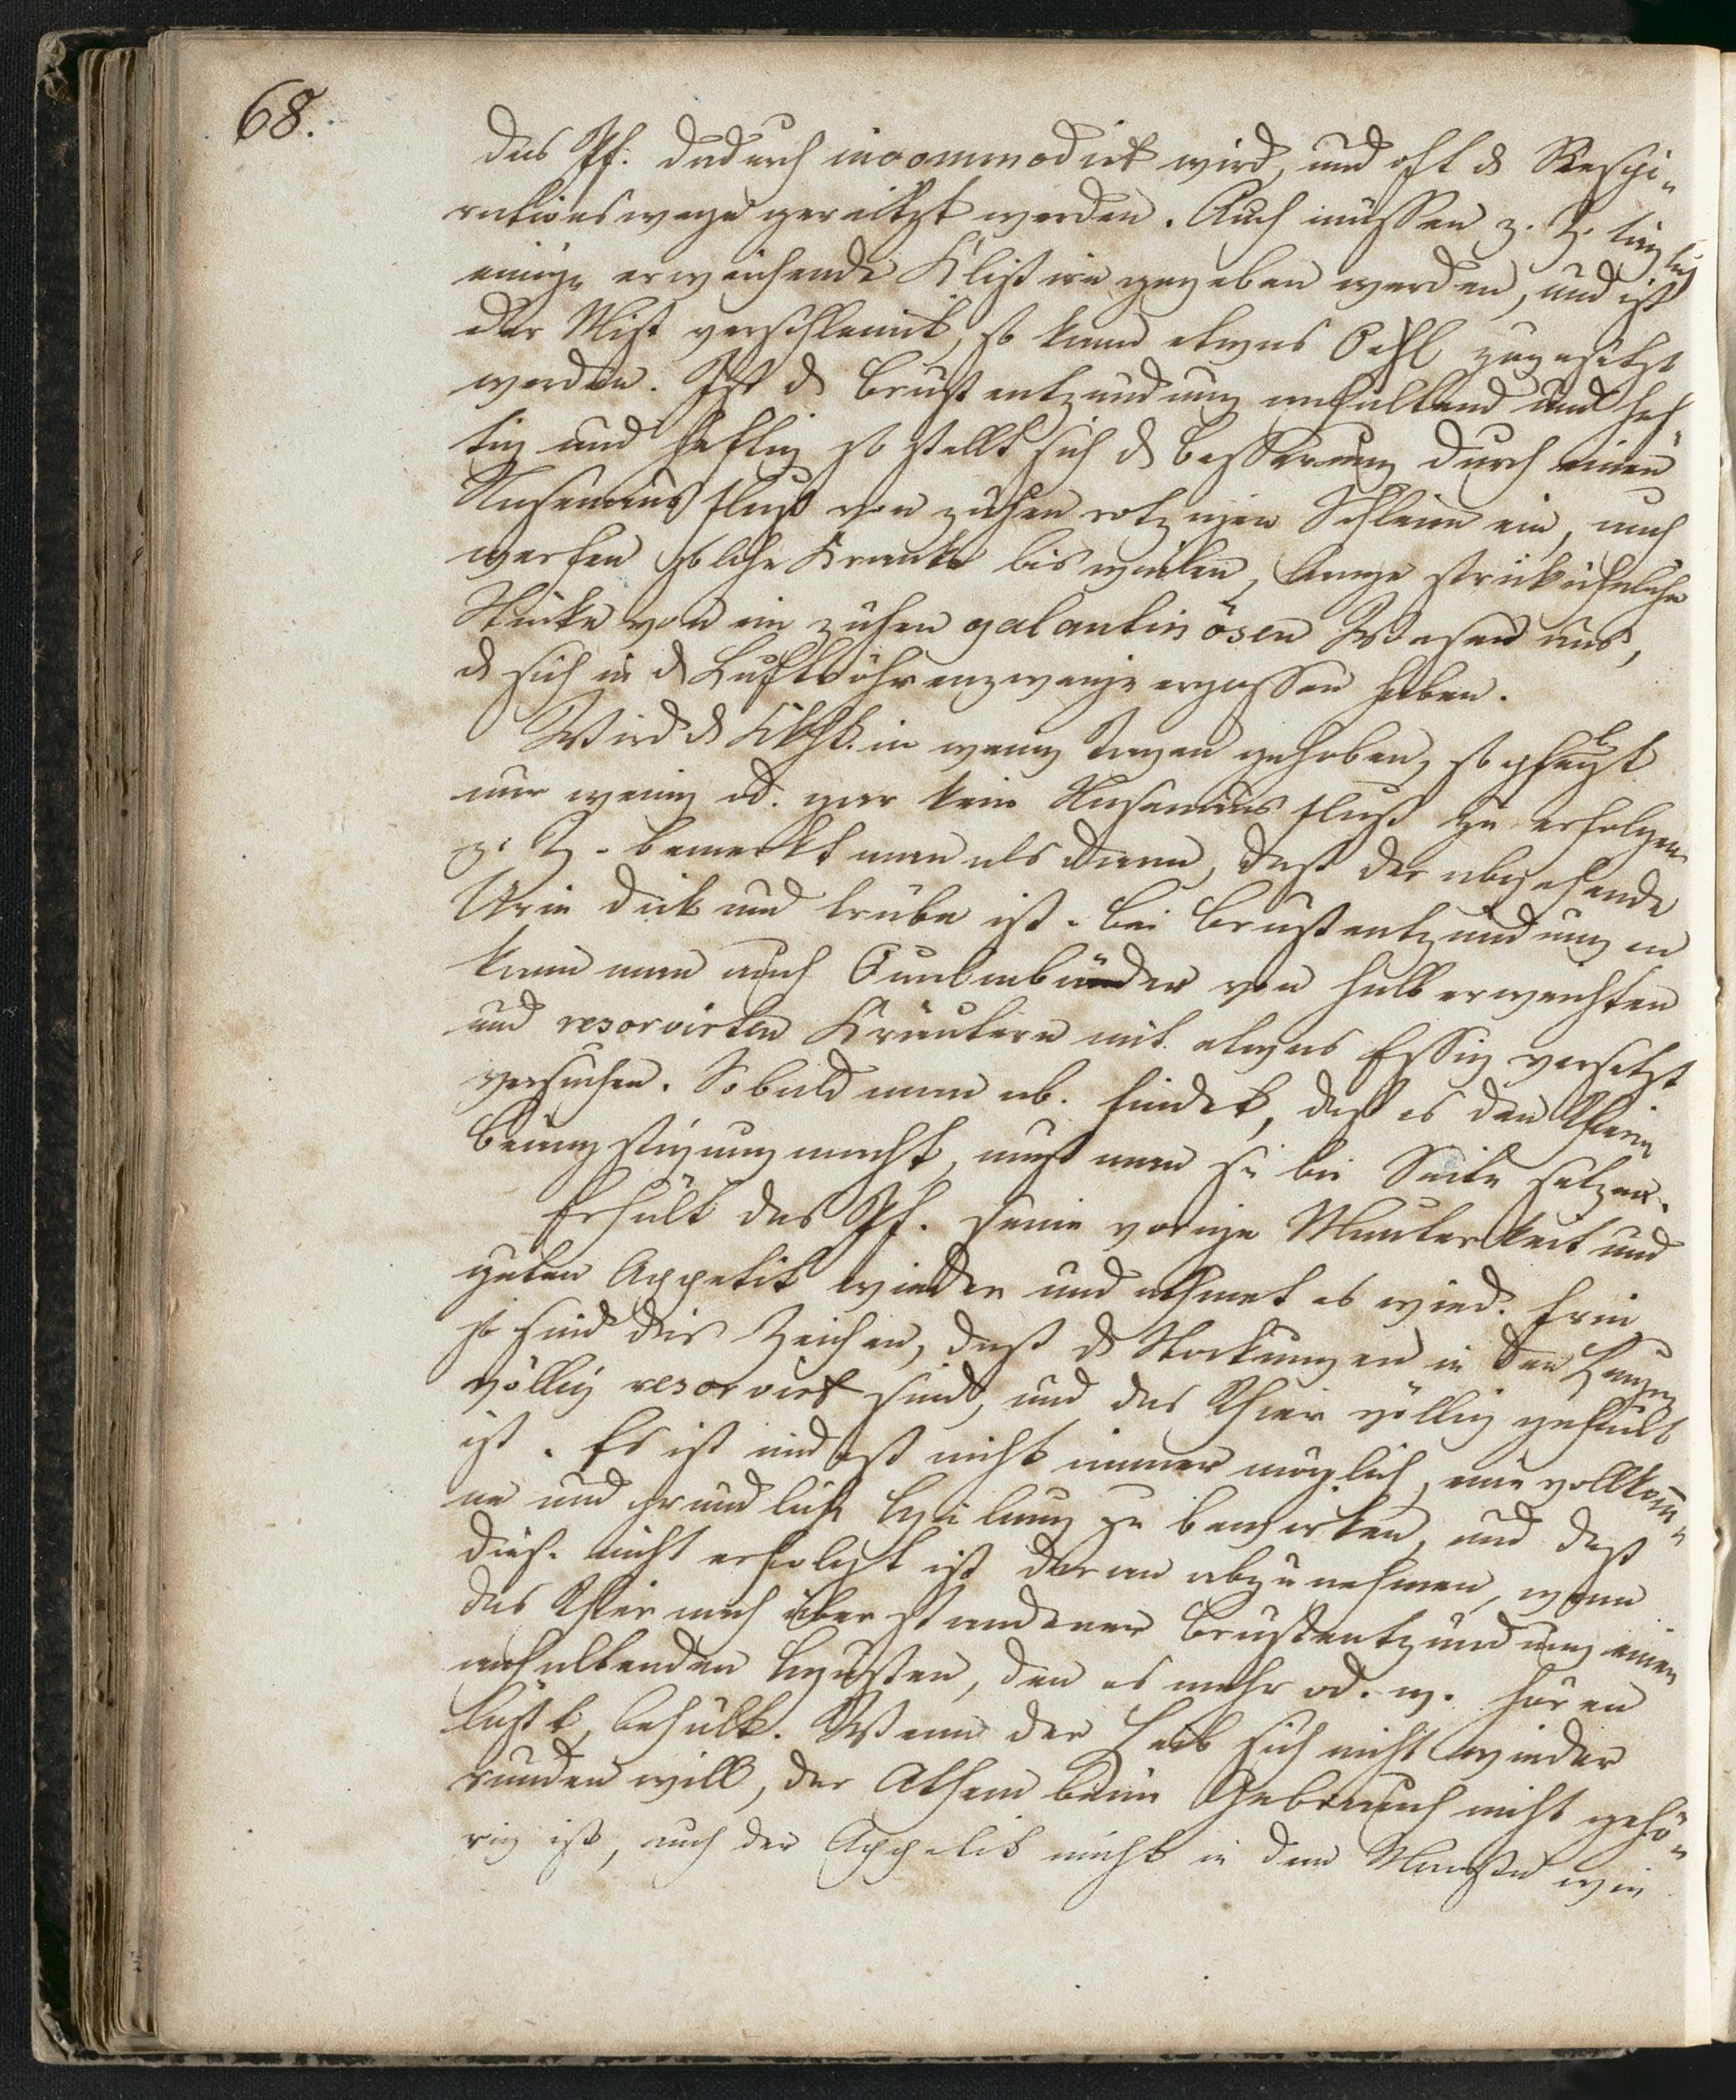 68.
das Pf. dadurch incommodirt wird, und oft d Respi-
rationswege gereitzt werden. Auch müssen z. Z. täglich
einige erweichende Klistire gegeben werden, und ist
der Mist verschleimt, so kann etwas Oehl zugesetzt
werden. Ist d Brustentzündung anhaltend und hef-
tig und heftig so stellt sich d Besserung durch einen
Nasenausfluß von zähen rotzigen Schleim ein, auch
werfen solche Kranke bisweilen, lange strickähnliche
Stücke von ein zähen galantinösen Wesen aus,
d sich in d Luftröhrenzweige ergossen haben.
Wird d Kkht. in wenig Tagen gehoben, so pflegt
nur wenig od. gar kein Nasenausfluß zu erfolgen
z. Z. bemerkt man als dann, daß der abgehende
Urin dick und trübe ist. Bei Brustentzündungen
kann man auch bänder von halb erweichten
und resorvirten Kräutern mit etwas Essig versetzt
versuchen. Sobald man ab. findet, daß es den Thieren
Beängstigung macht, muß man sie bei Seite setzen.
Erhält das Pf. seine vorige Munterkeit und
guten Appetit wieder und athmet es wied. frei
so sind dies Zeichen, daß d Stockungen in den Lungen
völlig resorvirt sind, und das Thier völlig geheilt
ist. Es ist indeß nicht immer möglich, eine vollkom̅-
ne und gründliche Heilung zu bewirken, und daß
dies. nicht erfolgt ist daran abzunehmen, wenn
das Thier nach überstandener Brustentzündung einen
anhaltenden Husten, den es mehr od. w. hören
läßt, behält. Wenn der Leib sich nicht wieder
runden will, der Athem beim Gebrauch nicht gehö-
rig ist, auch der Appetit nicht in dem Maaße wie